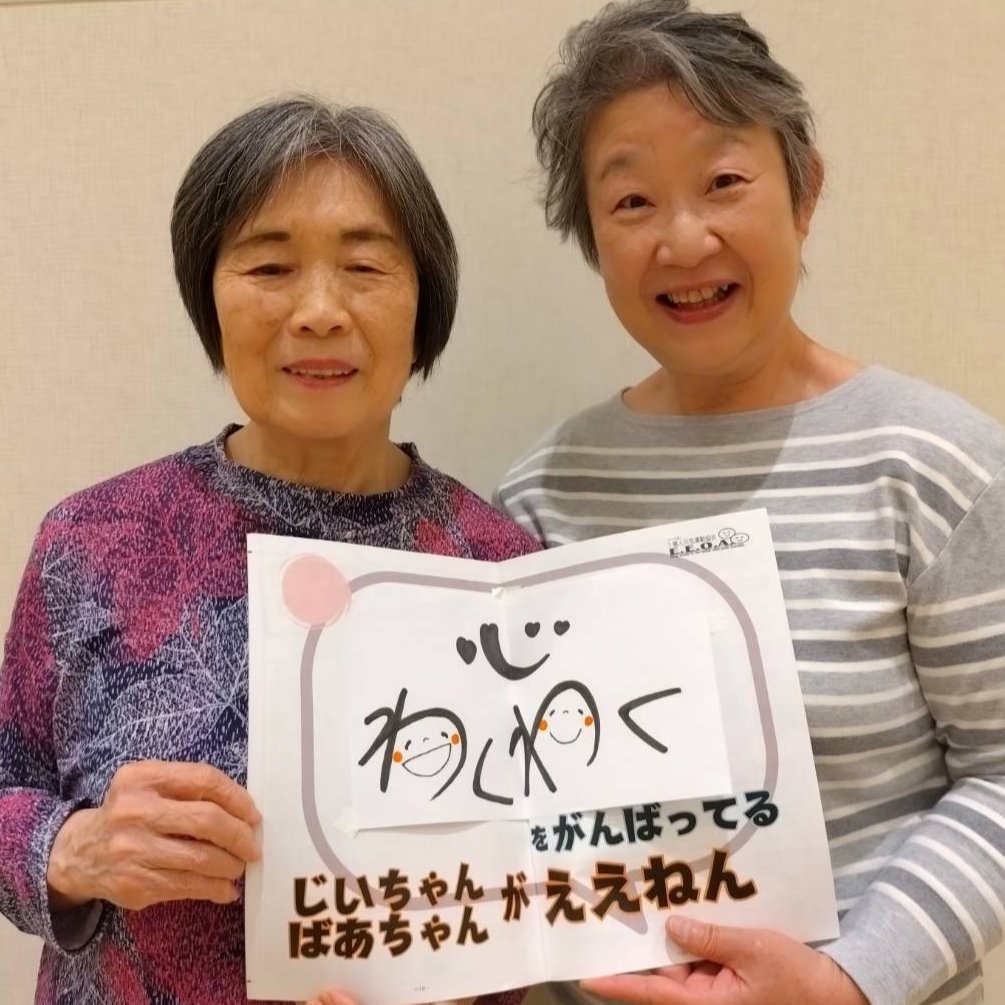 L.F.O.A
心
わくわく
をがんばってる
じいちゃん
ばあちゃん
がええねん